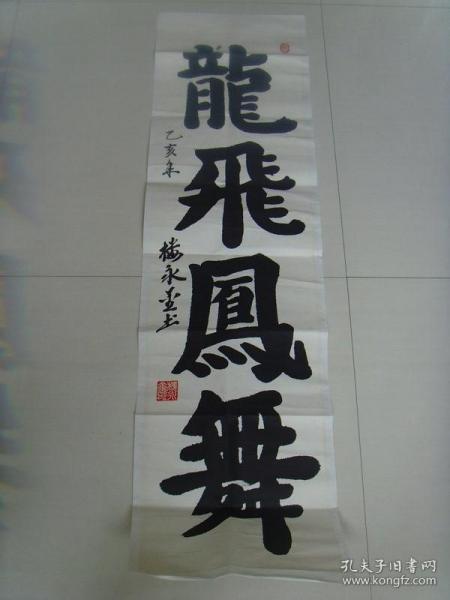 龍飛鳳舞
乙亥年
楼永
孔夫子旧书网
www.kongfz.com